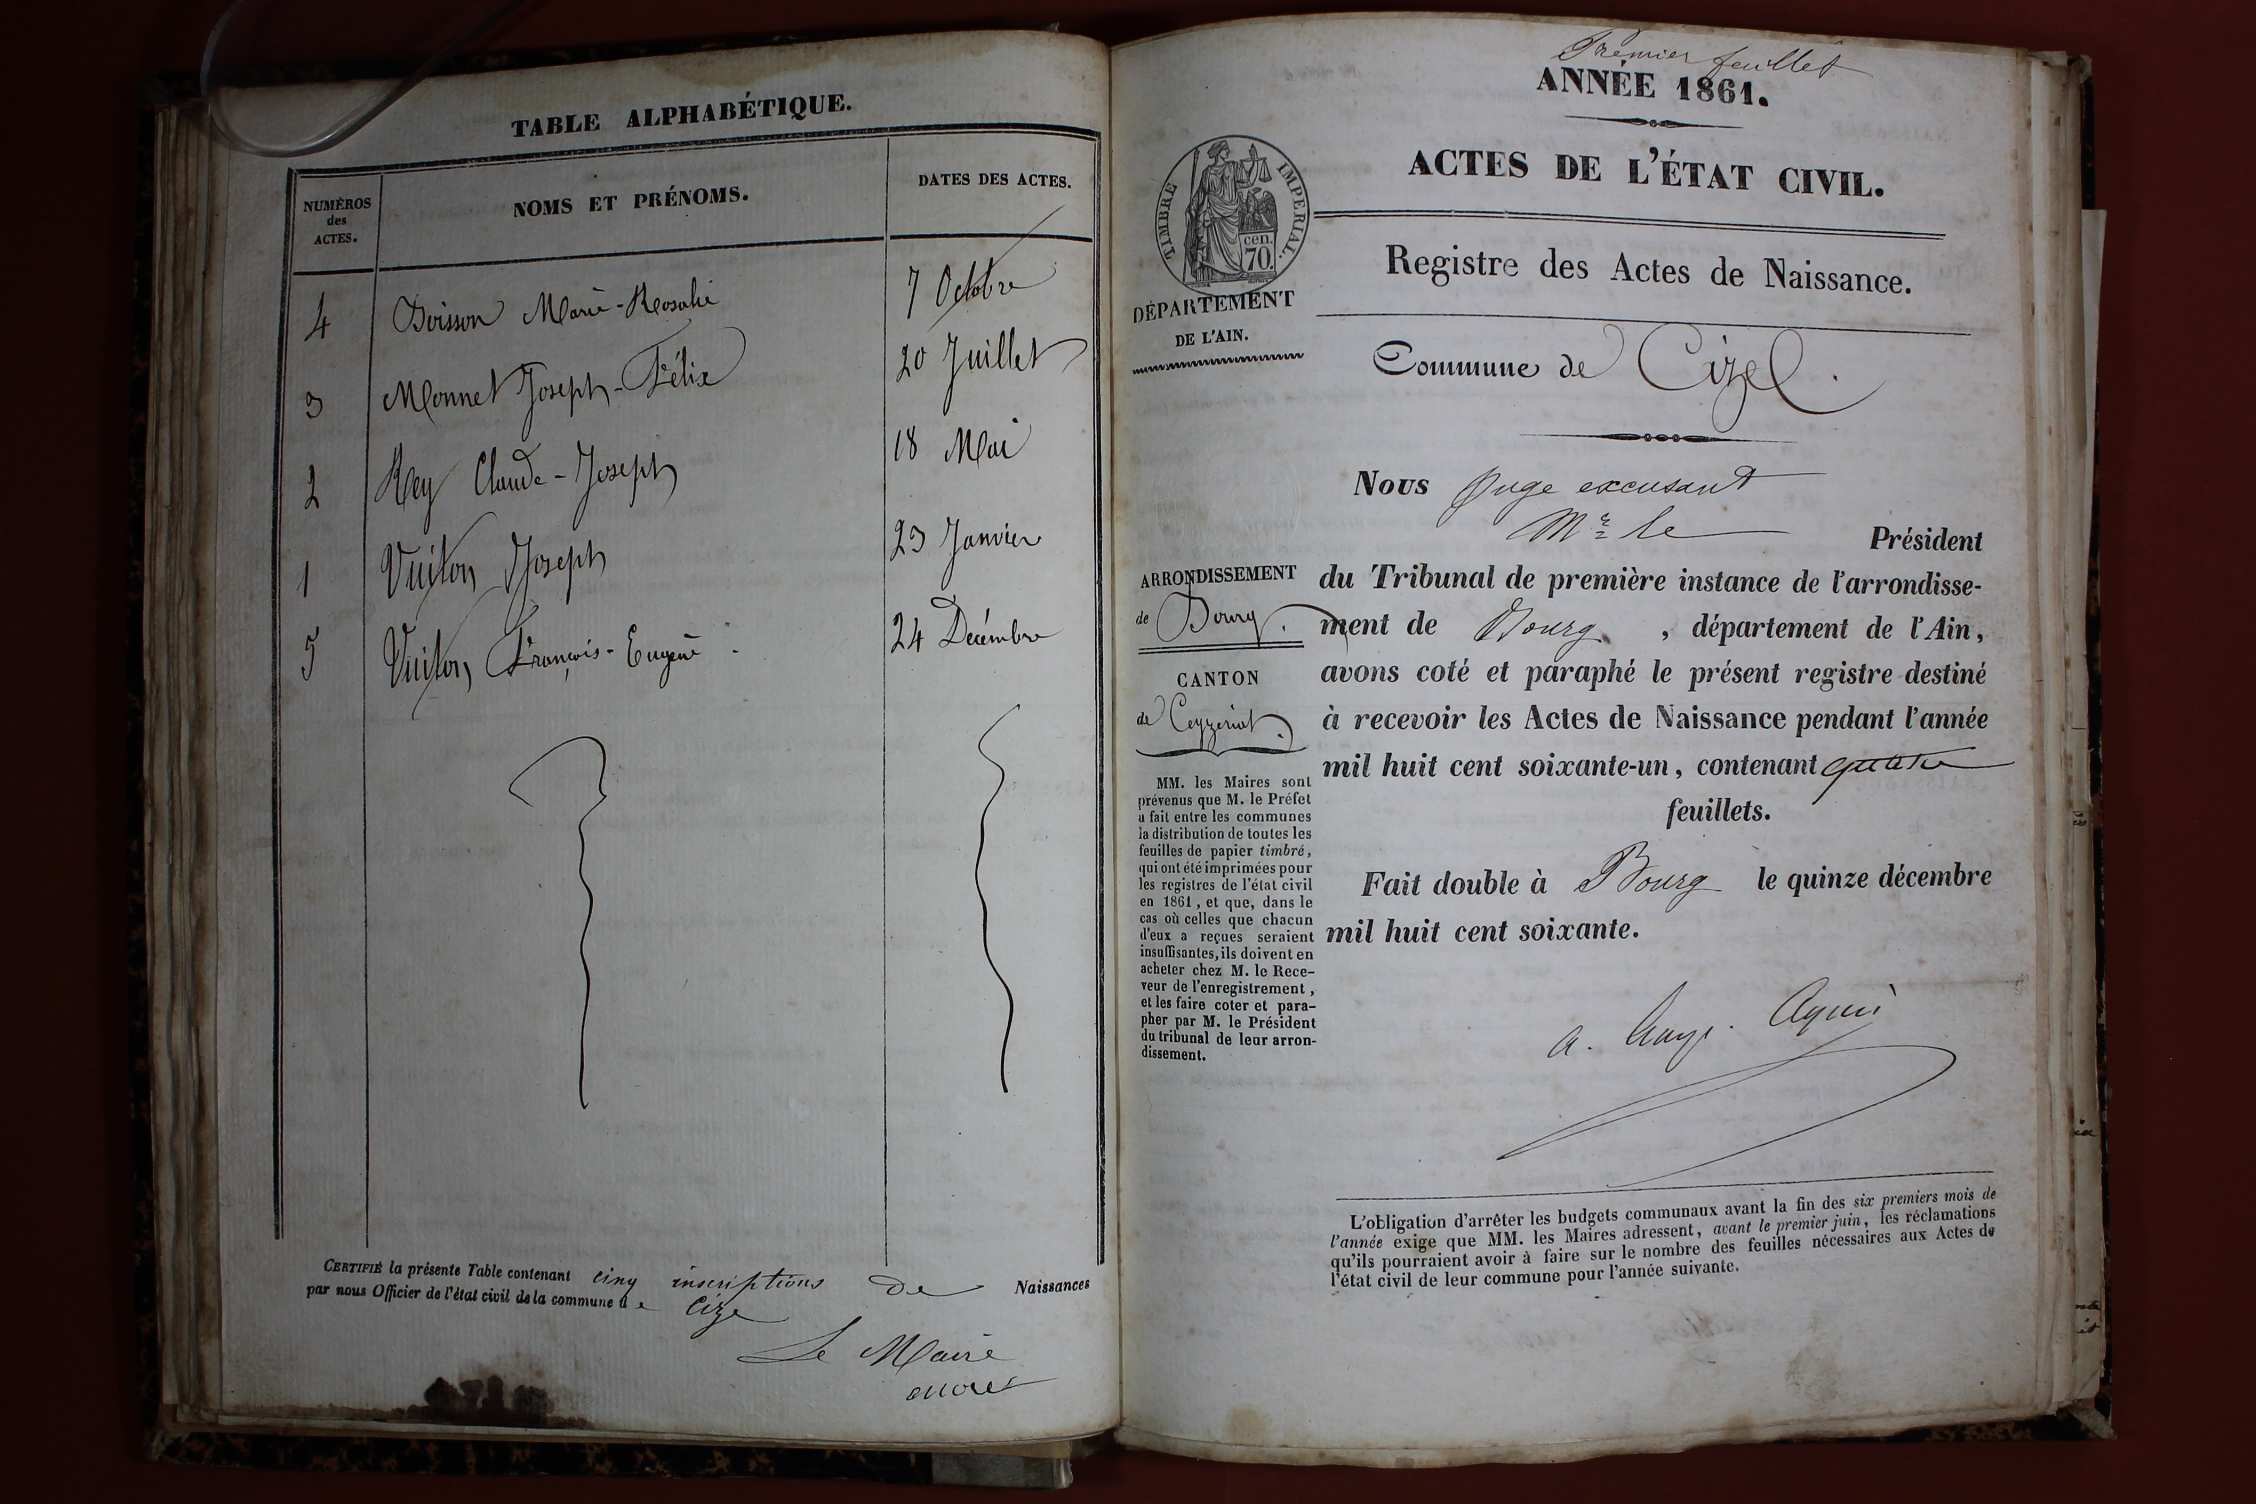 TABLE ALPHABÉTIQUE.
NUMÉROS
des
ACTES.
NOMS ET PRÉNOMS.
DATES DES ACTES.
4 Boisson Marie-Rosalie 7 Octobre
3 Monnet Joseph-Félix 20 Juillet
2 Rey Claude-Joseph 18 Mai
1 Vuiton Joseph 23 Janvier
5 Vuiton François-Eugène 24 Décembre
CERTIFIÉ la présente Table contenant cinq inscriptions de Naissances
par nous Officier de l'état civil de la commune de Cize
Le Maire
Premier feuillet
ANNÉE 1861.
ACTES DE L'ÉTAT CIVIL.
TIMBRE IMPÉRIAL.
cen.
70.
DÉPARTEMENT
DE L'AIN.
Registre des Actes de Naissance.
Commune de Cizel.
Nous Juge excusant
Mr le Président
ARRONDISSEMENT
de Bourg.
CANTON
de Ceyzeriat.
du Tribunal de première instance de l'arrondisse-
ment de Bourg, département de l'Ain,
avons coté et paraphé le présent registre destiné
à recevoir les Actes de Naissance pendant l'année
mil huit cent soixante-un, contenant quatre
feuillets.
Fait double à Bourg le quinze décembre
mil huit cent soixante.
MM. les Maires sont
prévenus que M. le Préfet
a fait entre les communes
la distribution de toutes les
feuilles de papier timbré,
qui ont été imprimées pour
les registres de l'état civil
en 1861, et que, dans le
cas où celles que chacun
d'eux a reçues seraient
insuffisantes, ils doivent en
acheter chez M. le Rece-
veur de l'enregistrement,
et les faire coter et para-
pher par M. le Président
du tribunal de leur arron-
dissement.
L'obligation d'arrêter les budgets communaux avant la fin des six premiers mois de
l'année exige que MM. les Maires adressent, avant le premier juin, les réclamations
qu'ils pourraient avoir à faire sur le nombre des feuilles nécessaires aux Actes de
l'état civil de leur commune pour l'année suivante.